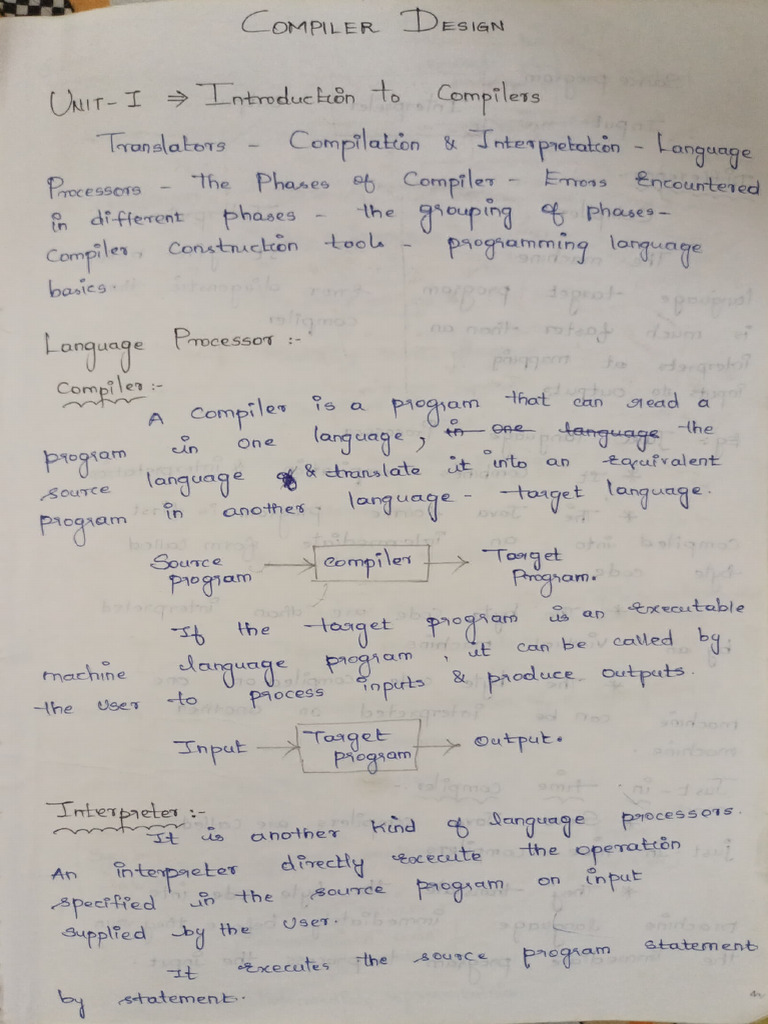 COMPILER DESIGN
UNIT-I ⇒ Introduction to Compilers
Translators - Compilation & Interpretation - Language
Processors - The Phases of Compiler - Errors Encountered
in different phases - the grouping of phases -
Compiler construction tools - programming language
basics.
Language Processor :-
Compiler :-
A Compiler is a program that can read a
program in one language, in one language the
source language & translate it into an equivalent
program in another language - target language.
Source program → compiler → Target Program.
If the target program is an executable
machine language program, it can be called by
the user to process inputs & produce outputs.
Input → Target program → Output.
Interpreter :-
It is another kind of language processors.
An interpreter directly execute the operation
specified in the source program on input
supplied by the user.
It executes the source program statement
by statement.